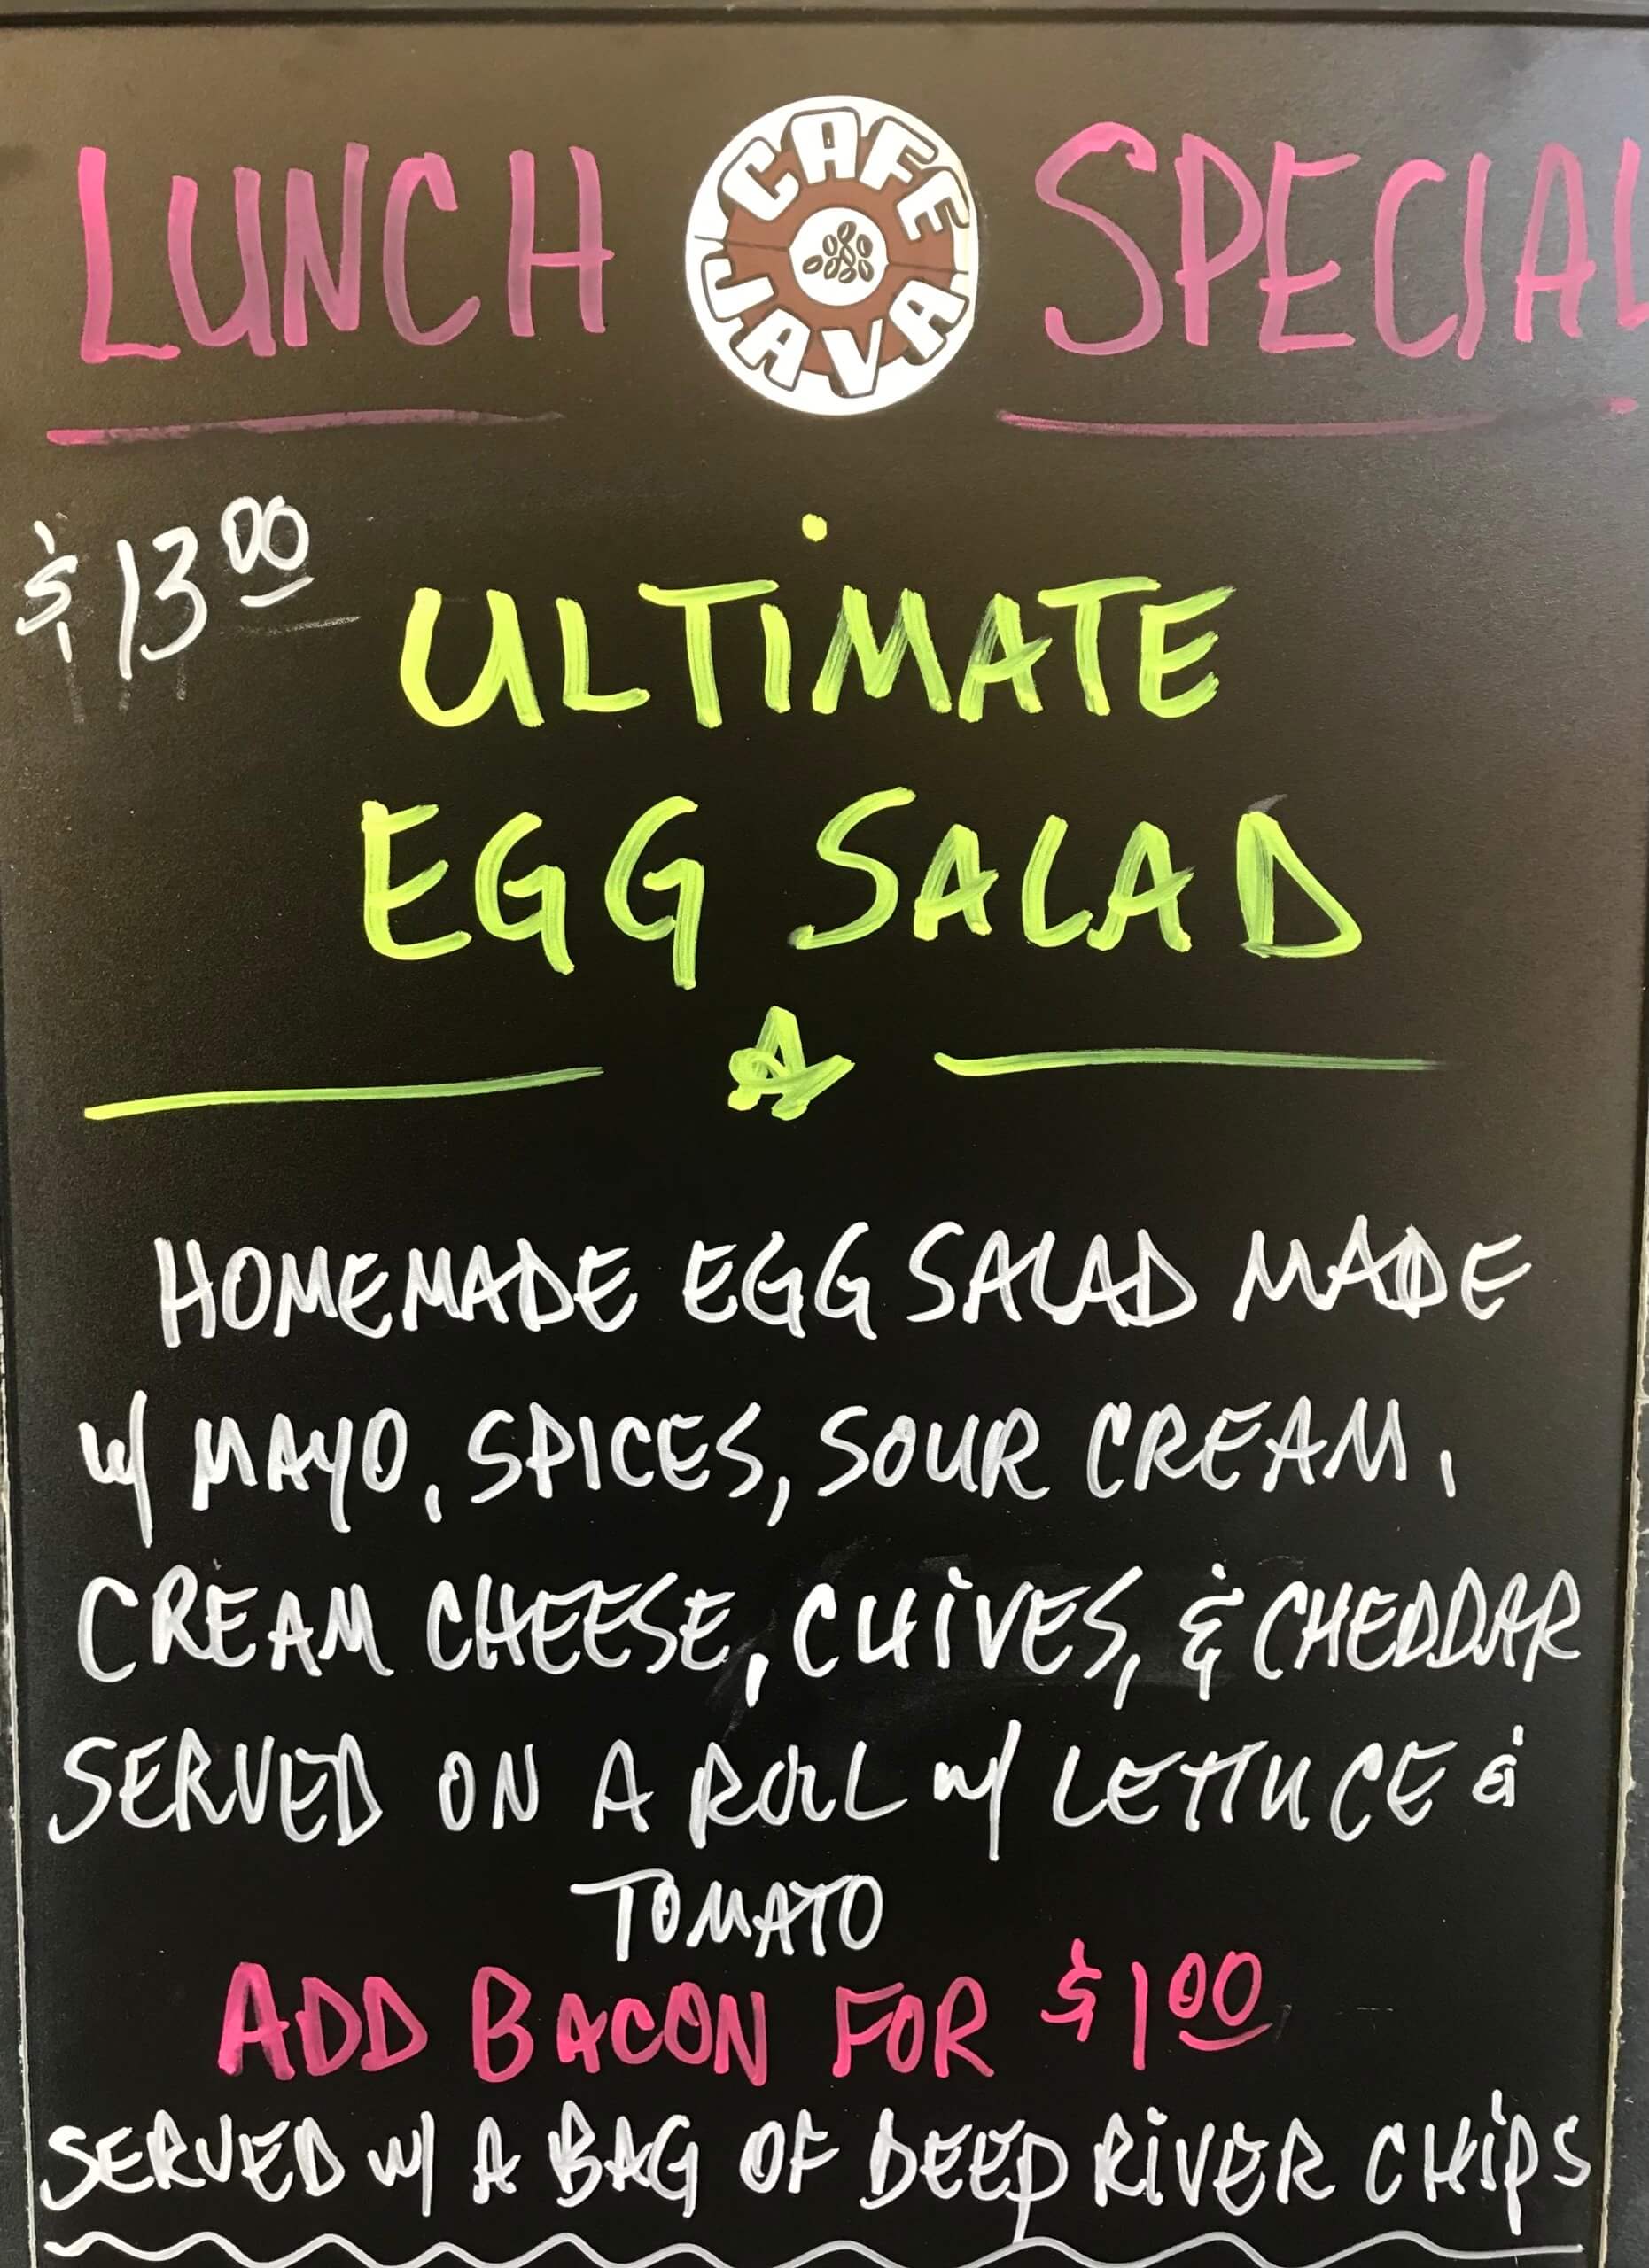 LUNCH CAFE JAVA SPECIAL
$13.00
ULTiMATE
EGG SALAD
HOMEMADE EGG SALAD MADE
w/ MAYO, SPICES, SOUR CREAM,
CREAM CHEESE, CHiVES, & CHEDDAR
SERVED ON A ROLL w/ LETTUCE &
TOMATO
ADD BACON FOR $1.00
SERVED w/ A BAG OF DEEP RiVER CHiPS